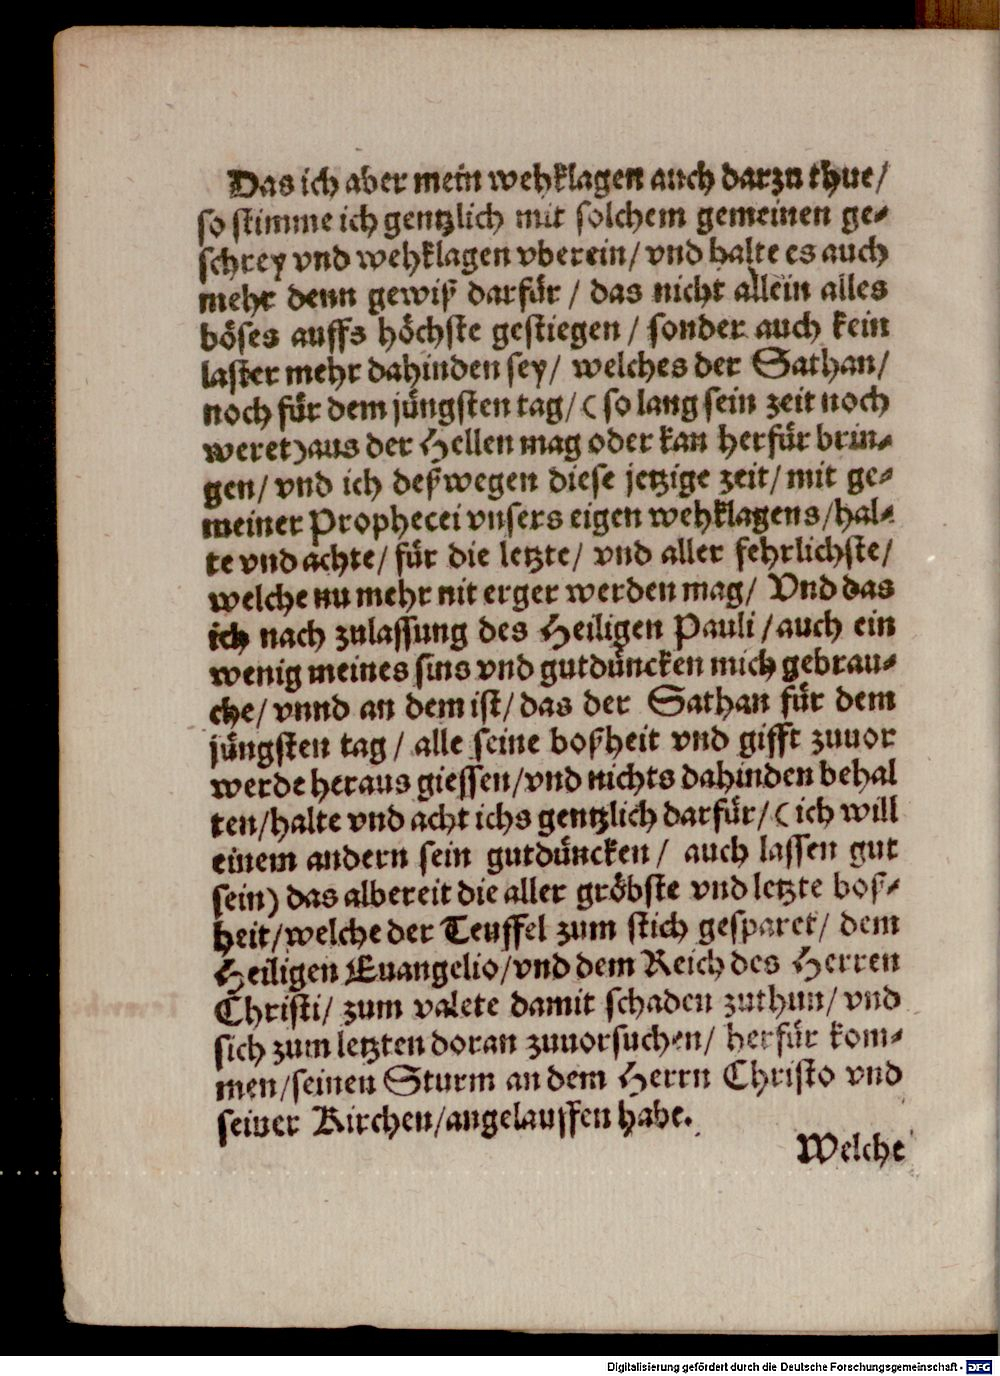 Das ich aber mein wehklagen auch darzu thue/
so stimme ich gentzlich mit solchem gemeinen ge⸗
schrey vnd wehklagen vberein/ vnd halte es auch
mehr denn gewiß darfür / das nicht allein alles
böses auffs höchste gestiegen / sonder auch kein
laster mehr dahinden sey/ welches der Sathan/
noch für dem jüngsten tag/ (so lang sein zeit noch
weret) aus der Hellen mag oder kan herfür brin⸗
gen/ vnd ich deßwegen diese jetzige zeit/ mit ge⸗
meiner Prophecei vnsers eigen wehklagens/hal⸗
te vnd achte/ für die letzte/ vnd aller fehrlichste/
welche nu mehr nit erger werden mag/ Vnd das
ich nach zulassung des Heiligen Pauli /auch ein
wenig meines sins vnd gutdüncken mich gebrau⸗
che/ vnnd an dem ist/ das der Sathan für dem
jüngsten tag / alle seine boßheit vnd gifft zuuor
werde heraus giessen/vnd nichts dahinden behal
ten/halte vnd acht ichs gentzlich darfür/ (ich will
einem andern sein gutdüncken / auch lassen gut
sein) das albereit die aller gröbste vnd letzte boß⸗
heit/welche der Teuffel zum stich gesparet/ dem
Heiligen Euangelio/vnd dem Reich des Herren
Christi/ zum valete damit schaden zuthun/ vnd
sich zum letzten doran zuuorsuchen/ herfür kom⸗
men/seinen Sturm an dem Herrn Christo vnd
seiner Kirchen/angelauffen habe.
Welche
Digitalisierung gefördert durch die Deutsche Forschungsgemeinschaft - DFG